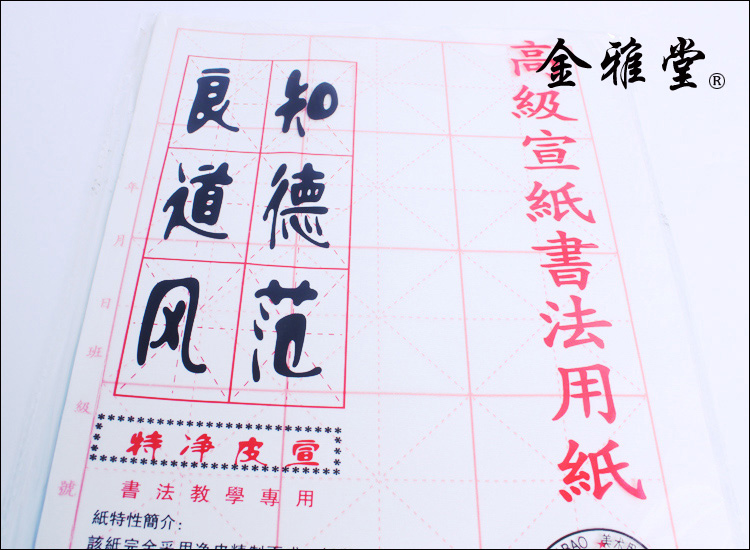 金雅堂®
高級宣紙書法用紙
知德范
良道风
年月日班級號
特净皮宣
書法教學專用
紙特性簡介：
該紙完全采用净皮精制
BAO 美术